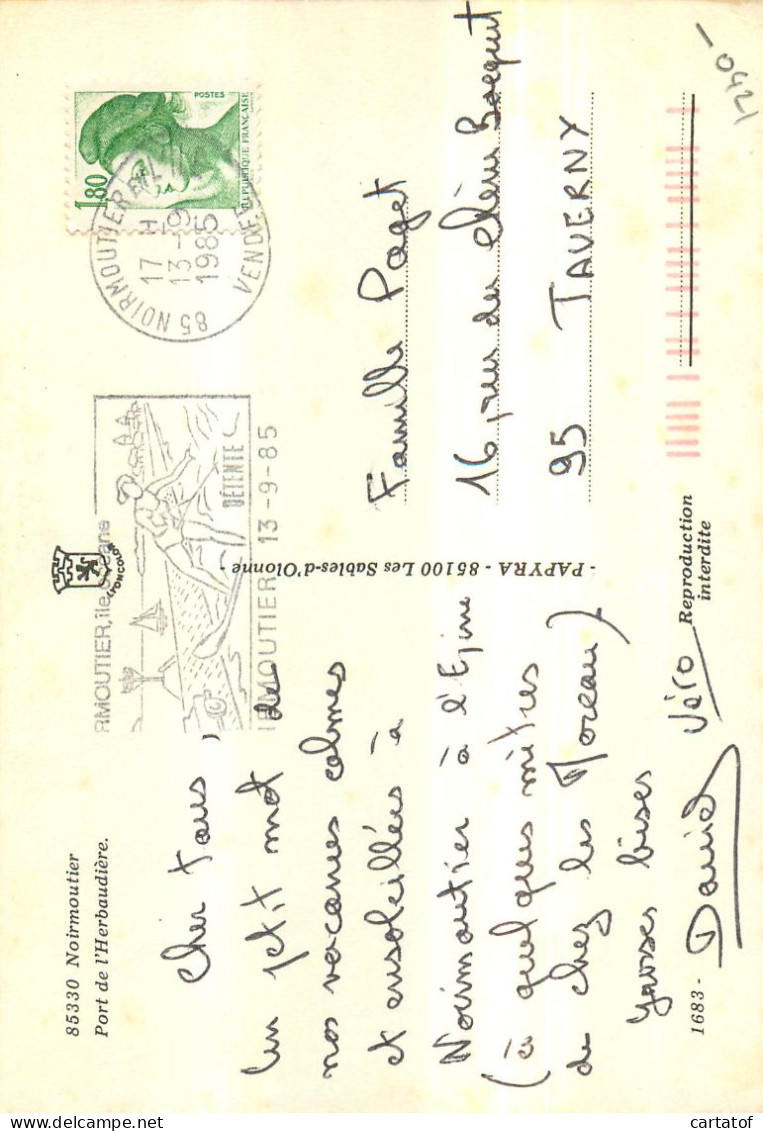 85330 Noirmoutier
Port de l'Herbaudière.
Cher tous,
Un petit mot de
nos vacances calmes
et ensoleillées à
Noirmoutier à l'Epine
(à quelques mètres
de chez les Moreau)
Grosses bises
David Véro
1683-
LYONCOLOR
- PAPYRA - 85100 Les Sables-d'Olonne -
Reproduction
interdite
RMOUTIER, île océane
DÉTENTE
IRMOUTIER 13-9-85
85 NOIRMOUTIER EN L'ILE
17 H
13-9
1985
VENDEE
1,80
POSTES
REPUBLIQUE FRANÇAISE
Famille Paget
16, rue du chêne Bocquet
95 TAVERNY
cartatof